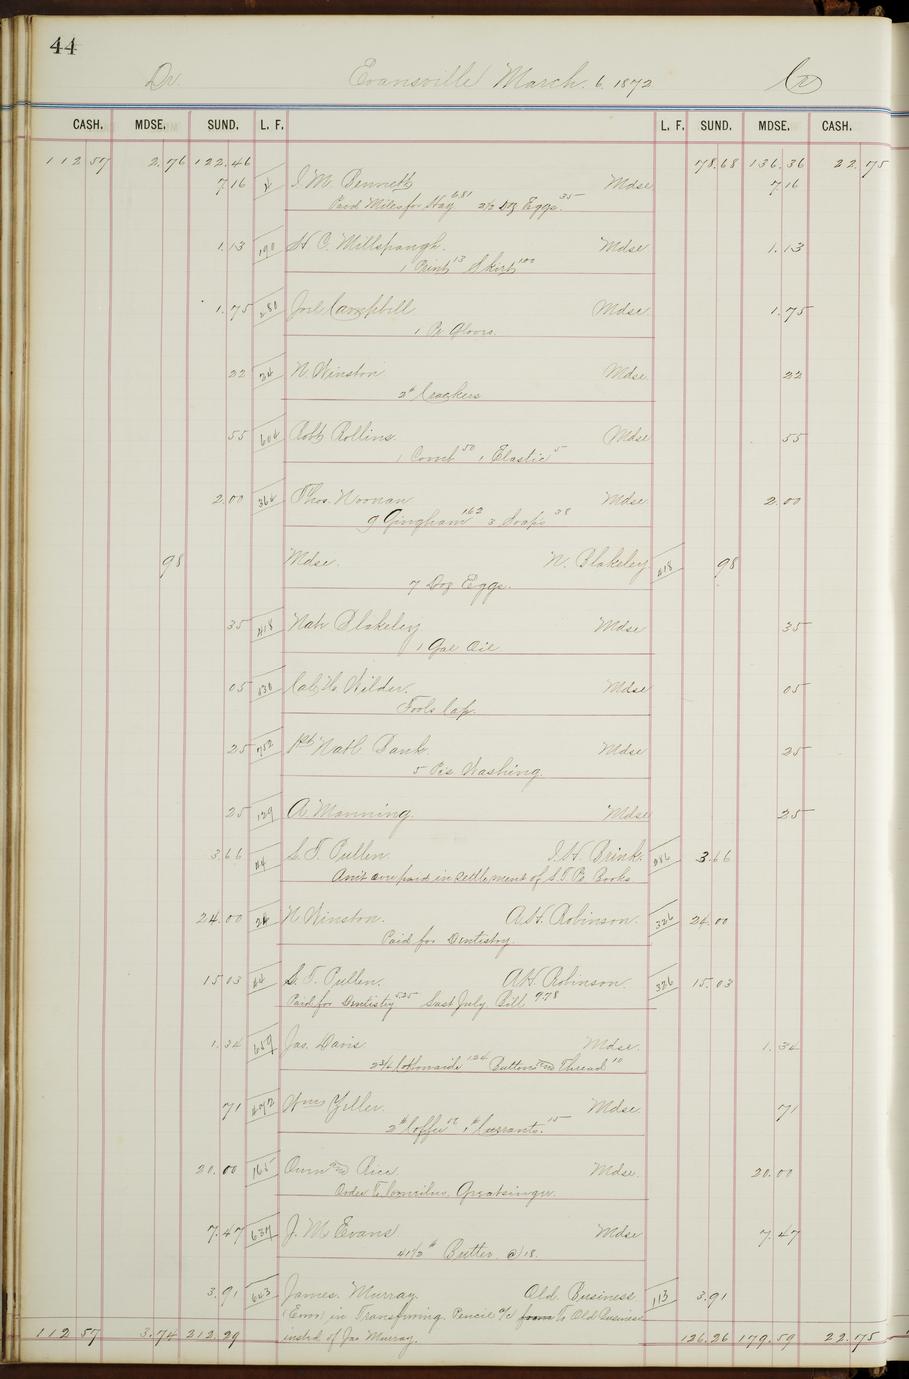 44
Dr. Evansville March. 6. 1872 Cr
CASH. MDSE. SUND. L. F. L. F. SUND. MDSE. CASH.
112 57 2.76 122.46 78.68 136.36 22.75
7.16 4 I. M. Bennett Mdse 7.16
Paid Miles for Hay 681 2½ Doz Eggs. 35
1.13 190 H C. Millspaugh. Mdse 1.13
1 Print 13 Skirt 100
1.75 280 Joel Campbell Mdse 1.75
1 Pr Gloves.
22 24 N. Winston Mdse. 22
2# Crackers
55 604 Robt Rollins. Mdse 55
1 Comb 50 1 Elastic 5
2.00 364 Thos. Noonan Mdse 2.00
9 Gingham 162 3 Soaps 38
98 Mdse. N. Blakeley 418 98
7 Doz Eggs.
35 418 Nat Blakeley Mdse 35
1 Gal Oil
05 630 Cal H. Wilder. Mdse 05
Fools Cap.
25 752 1st Natl Bank. Mdse 25
5 Pcs Washing.
25 129 A Manning. Mdse 25
3.66 44 L. T. Pullen. I. H. Brink. 3.66
Amt over paid in settlement of L. T. P. Books
24.00 24 N Winston. A. H. Robinson. 326 24.00
Paid for Dentistry.
15 03 44 L. T. Pullen. A H. Robinson. 326 15.03
Paid for Dentistry 525 Last July Bill 978
1.34 659 Jas. Davis Mdse. 1.34
2¾ Cottonaide 124 Buttons and Thread 10
71 472 Wm Yeller. Mdse. 71
2# Coffee 1# Currants. 15
20.00 165 Owen and Rice. Mdse. 20.00
Order To Cornelius Greatsinger.
7.47 637 J. M Evans Mdse 7.47
41½ # Butter. @ 18.
3.91 643 James. Murray. Old. Business 113 3.91
(Error) in Transfering. Pencil a/c from To Old Business
112 57 3.74 212.29 insted of Jas Murray. 126.26 179.59 22.75